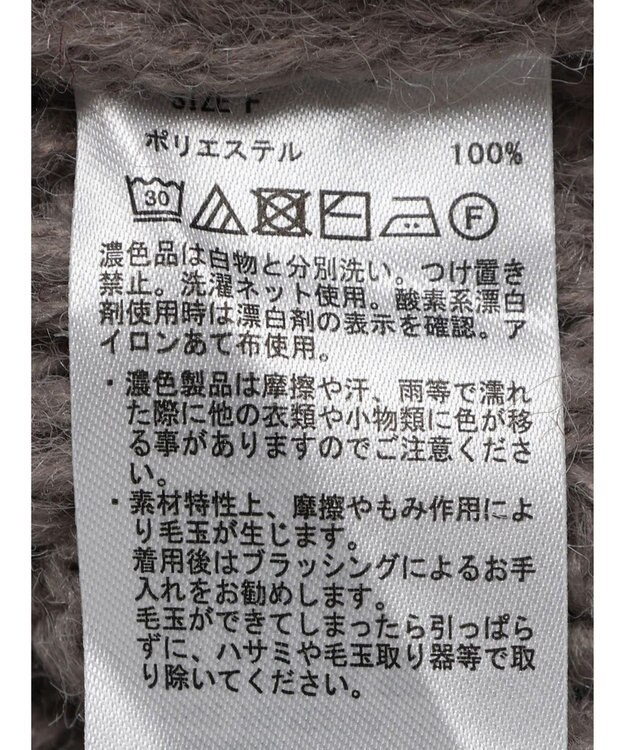 SIZE F
ポリエステル 100%
30 F
濃色品は白物と分別洗い。つけ置き
禁止。洗濯ネット使用。酸素系漂白
剤使用時は漂白剤の表示を確認。ア
イロンあて布使用。
・濃色製品は摩擦や汗、雨等で濡れ
た際に他の衣類や小物類に色が移
る事がありますのでご注意くださ
い。
・素材特性上、摩擦やもみ作用によ
り毛玉が生じます。
着用後はブラッシングによるお手
入れをお勧めします。
毛玉ができてしまったら引っぱら
ずに、ハサミや毛玉取り器等で取
り除いてください。